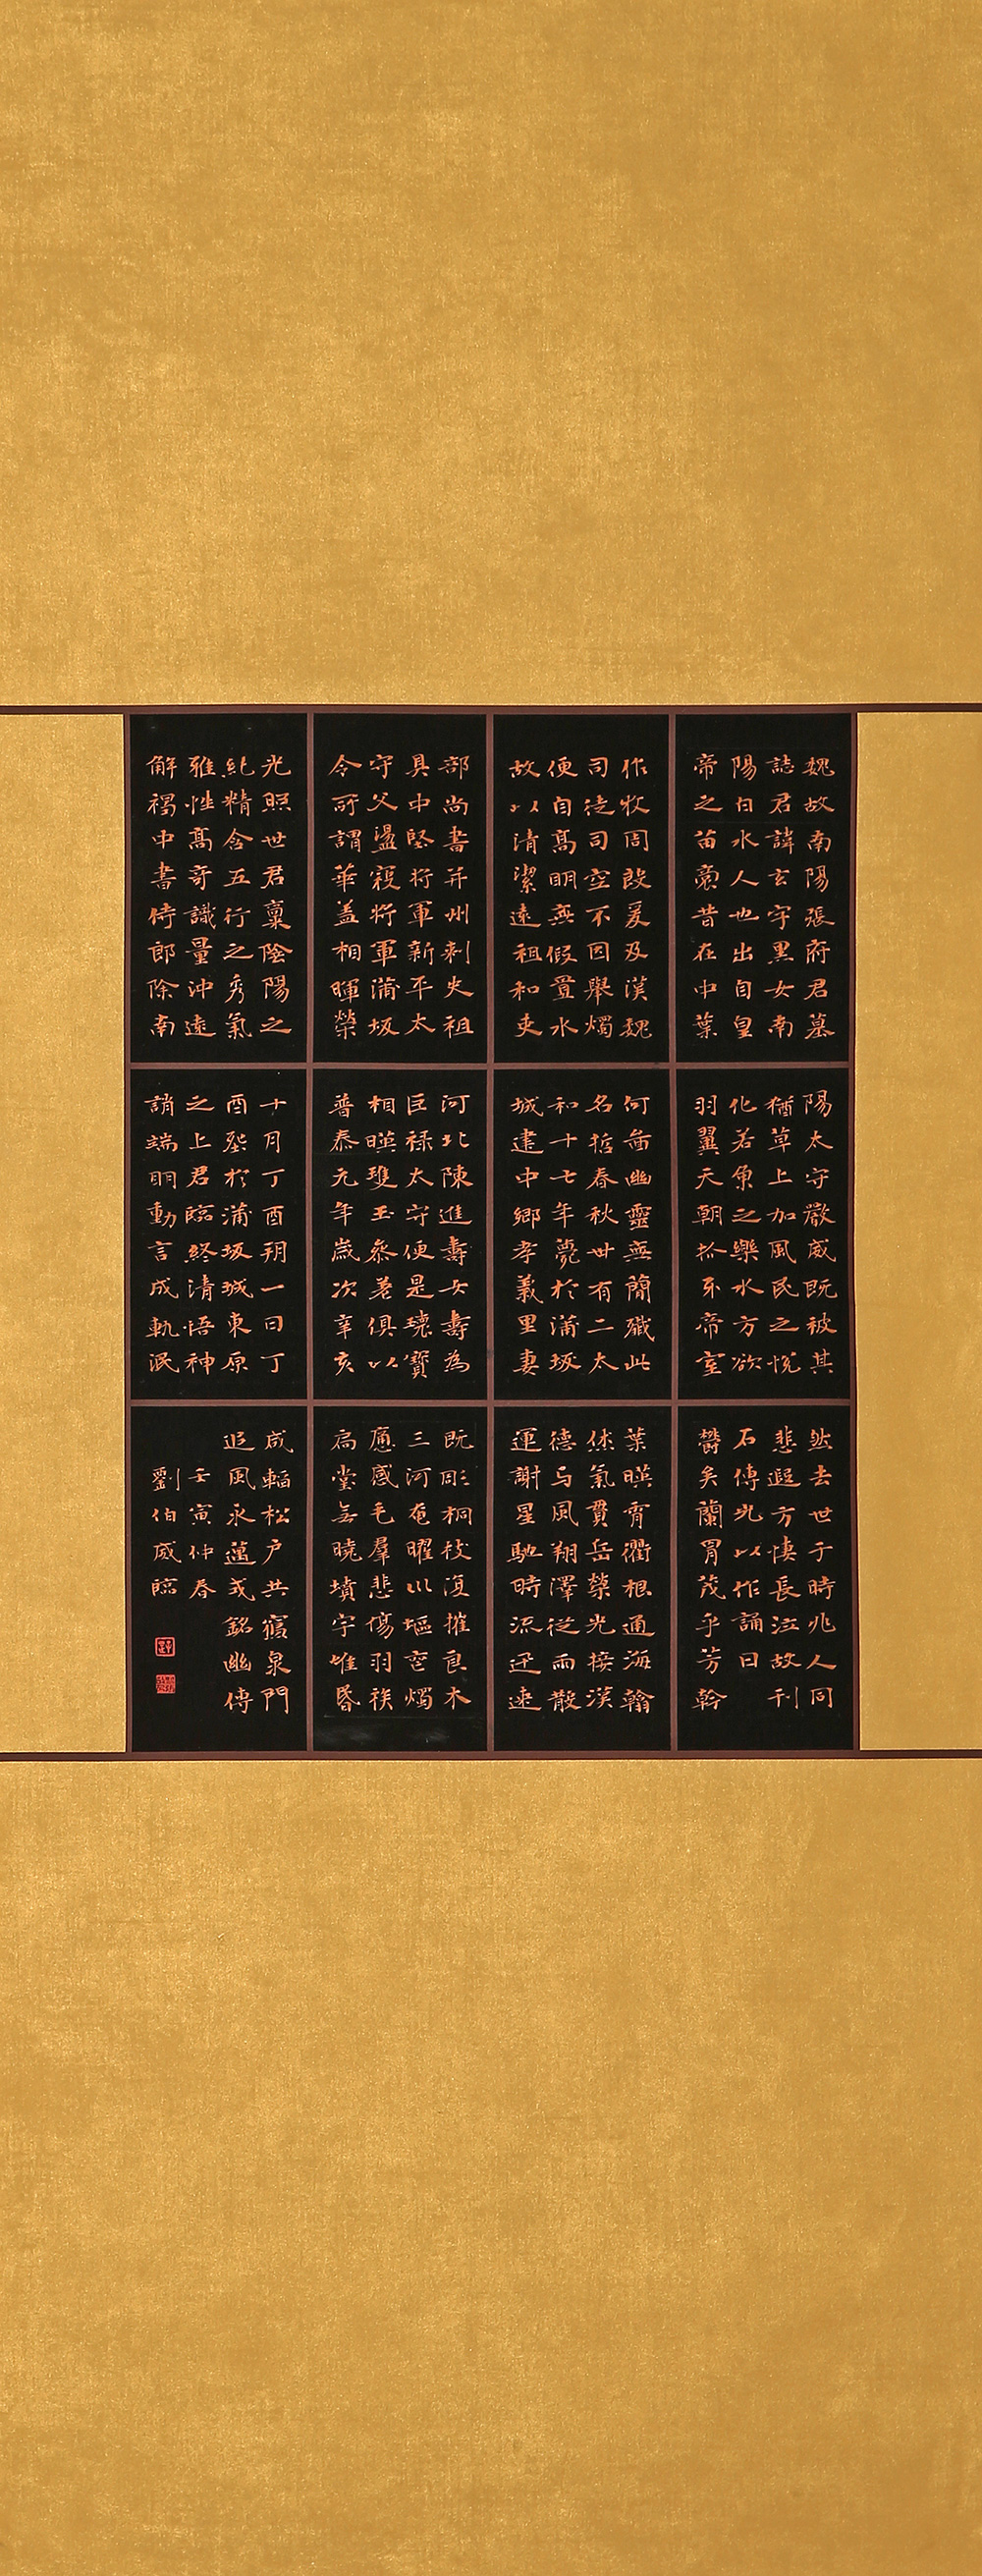 魏故南陽張府君墓
誌君諱玄字黑女南
陽白水人也出自皇
帝之苗裔昔在中葉
作牧周殷爰及漢魏
司徒司空不因舉燭
便自高明無假置水
故以清潔遠祖和吏
部尚書并州刺史祖
具中堅將軍新平太
守父盪寇將軍蒲坂
令所謂華盖相暉榮
光照世君稟陰陽之
純精含五行之秀氣
雅性高奇識量沖遠
解褐中書侍郎除南
陽太守嚴威既被其
猶草上加風民之悅
化若魚之樂水方欲
羽翼天朝抓牙帝室
何啚幽靈無簡殲此
名哲春秋卅有二太
和十七年薨於蒲坂
城建中鄉孝義里妻
河北陳進壽女壽為
巨祿太守便是瓌寶
相暎瓊玉參差俱以
普泰元年歲次辛亥
十月丁酉朔一日丁
酉葬於蒲坂城東原
之上君臨終清悟神
誚端明動言成軌泯
然去世于時兆人同
悲遐方悽長泣故刊
石傳光以作誦曰
鬱矣蘭胄茂乎芳幹
葉暎霄衢根通海翰
休氣貫岳榮光接漢
德与風翔澤從雨散
運謝星馳時流迅速
既彫桐枝復摧良木
三河奄曜川塸啚燭
痛感毛羣悲傷羽族
扃堂無曉墳宇唯昏
咸輴松戶共寢泉門
追風永邁式銘幽傳
壬寅仲春
劉伯成臨